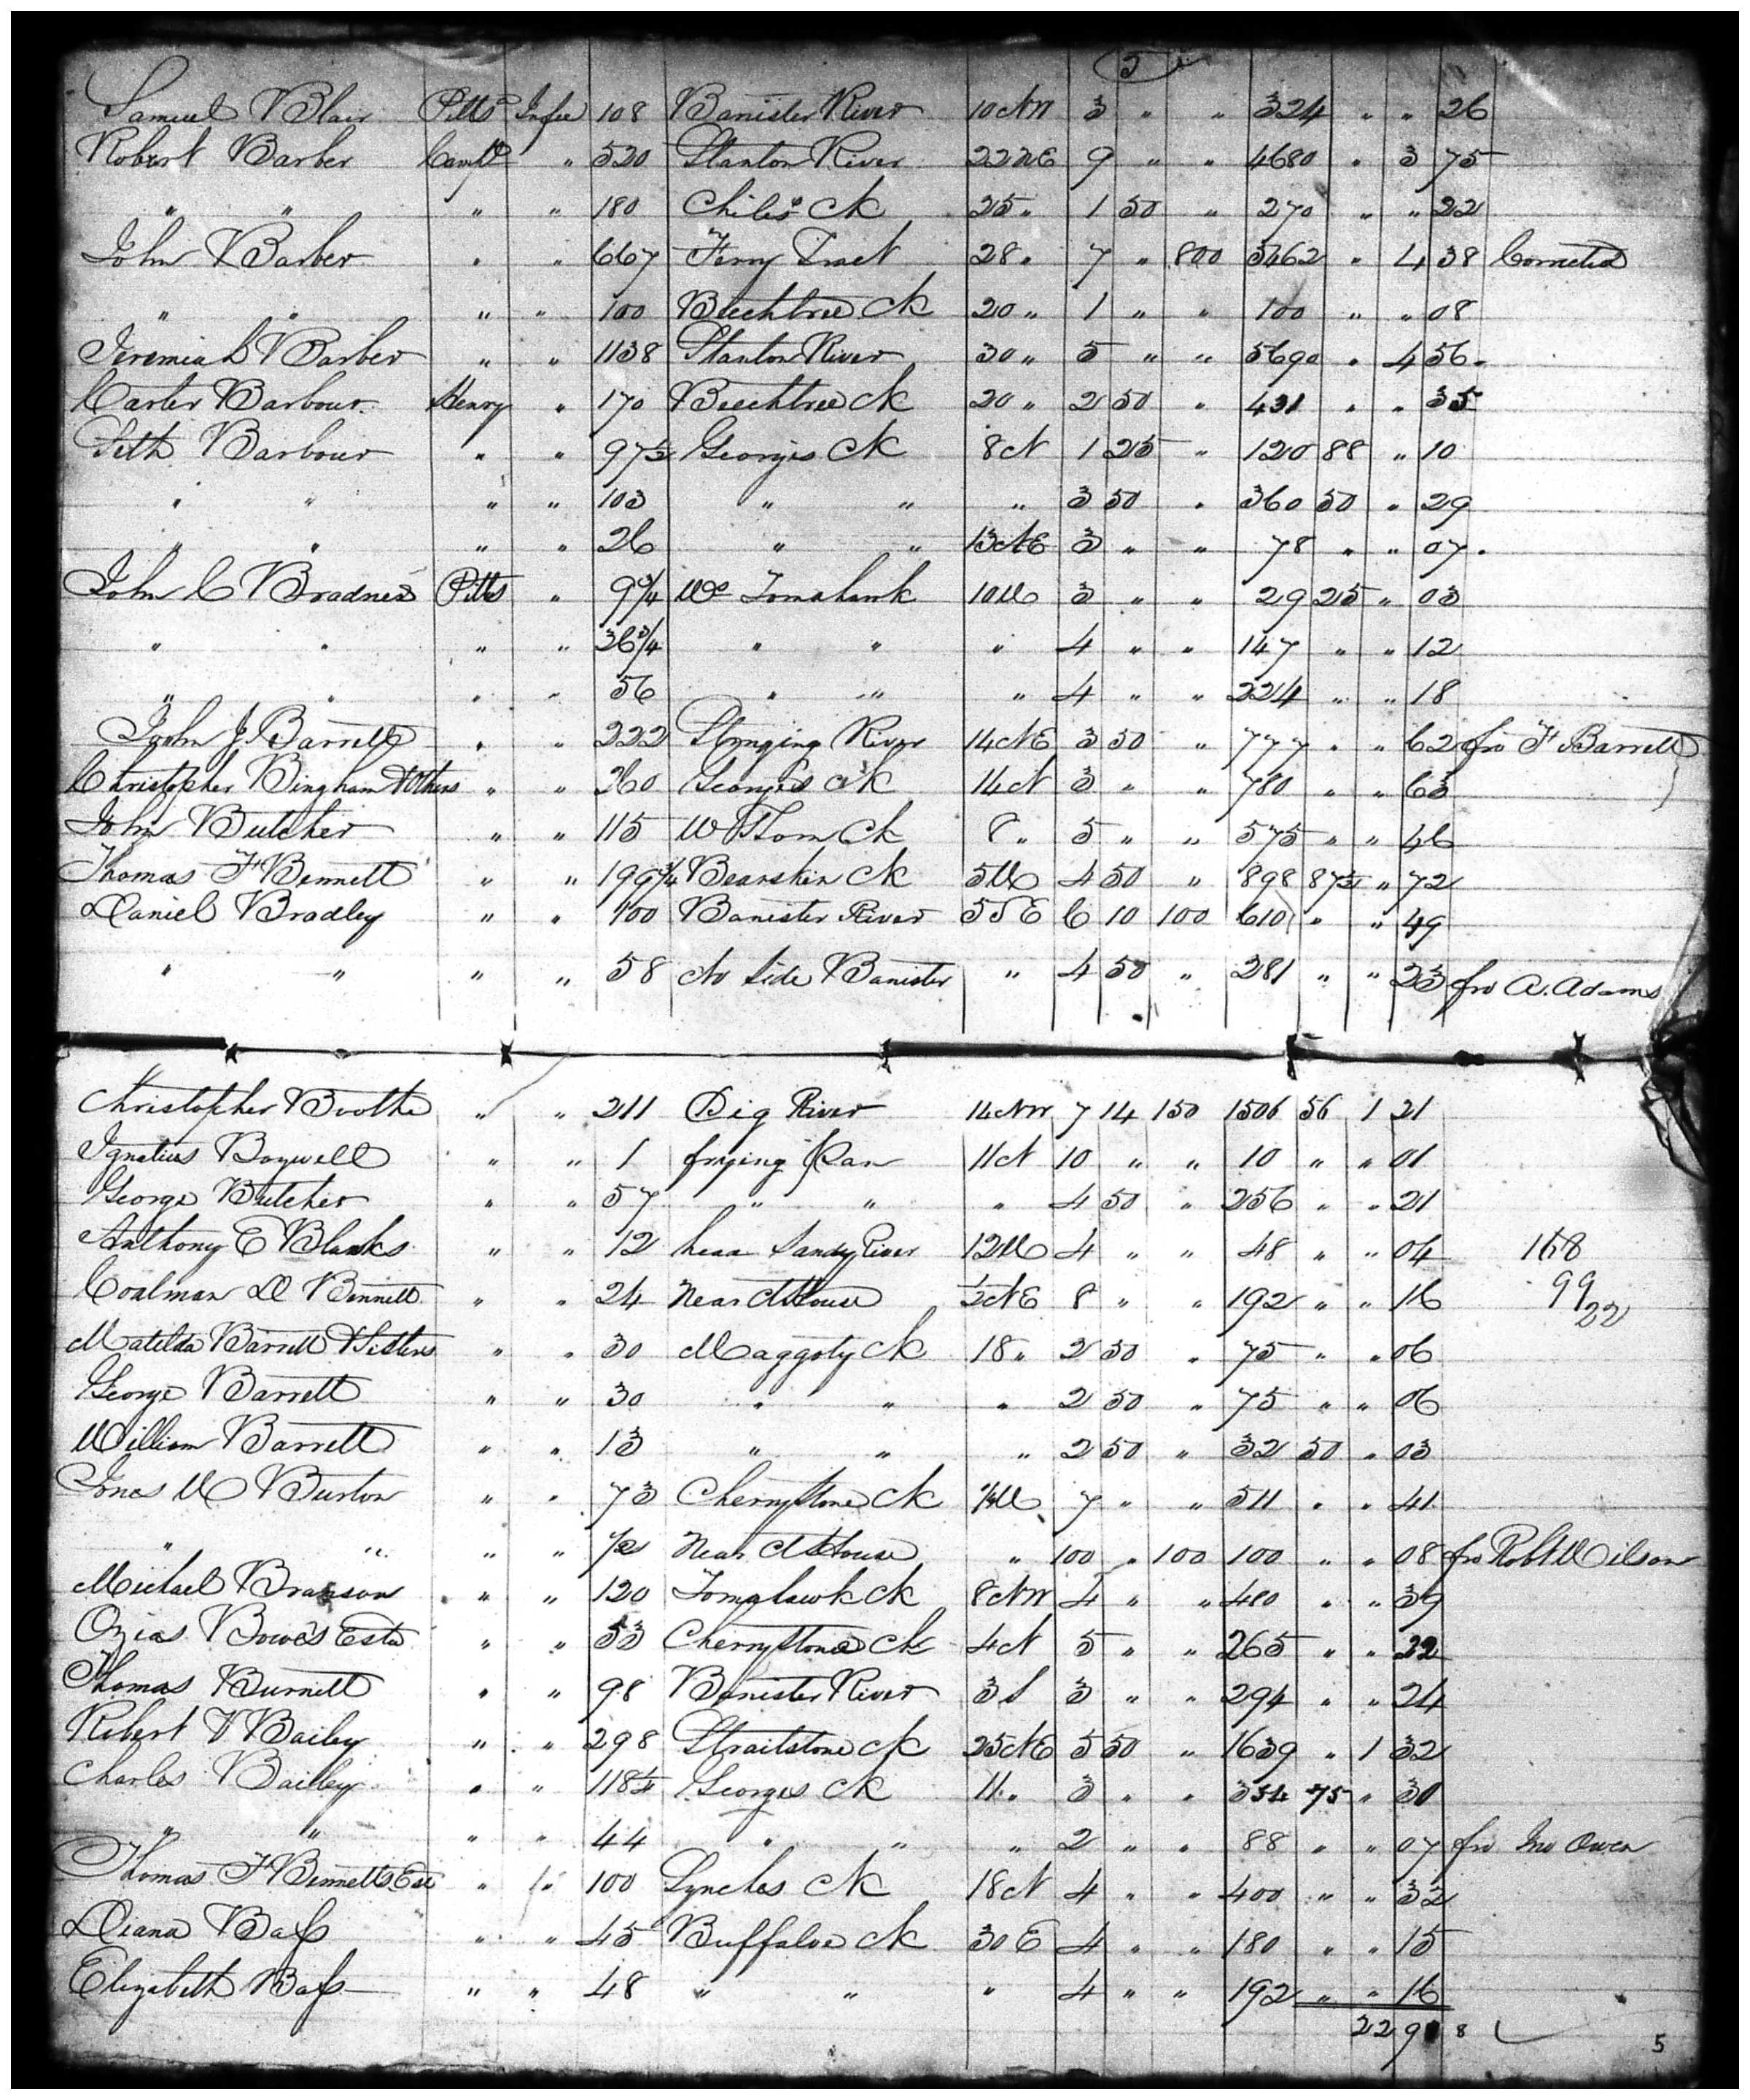 5
Samuel Blair Pitts Infee 108 Banister River 10 NW 3 " " 324 " " 26
Robert Barber Camp " 520 Stanton River 22 NE 9 " " 4680 " 3 75
" " " " 180 Childs Ck 25 " 1 50 " 270 " " 22
John Barber " " 667 Ferry Tract 28 " 7 " 800 5462 " 4 38 Corrected
" " " " 100 Beechtree Ck 20 " 1 " " 100 " " 08
Jeremiah Barber " " 1138 Stanton River 30 " 5 " " 5690 " 4 56
Carter Barbour Henry " 170 Beechtree Ck 20 " 2 50 " 431 " " 35
Seth Barbour " " 97½ Georges Ck 8 N 1 25 " 120 88 " 10
" " " " 103 " " " 3 50 " 360 50 " 29
" " " " 26 " " 13 NE 3 " " 78 " " 07
John C Bradner Pitts " 9¾ Wt Tomahawk 10 W 3 " " 29 25 " 03
" " " " 36¾ " " " 4 " " 147 " " 12
" " " " 56 " " " 4 " " 224 " " 18
John J Barrett " " 222 Stinging River 14 NE 3 50 " 777 " " 62 fro F Barrett
Christopher Bingham & Others " " 260 Georges Ck 14 N 3 " " 780 " " 63
John Butcher " " 115 W Tom Ck 8 " 5 " " 575 " " 46
Thomas F Bennett " " 199¾ Bearskin Ck 5 W 4 50 " 898 87½ " 72
Daniel Bradley " " 100 Banister River 5 SE 6 10 100 610 " " 49
" " " " 58 No Side Banister " 4 50 " 281 " " 23 fro A. Adams
Christopher Boothe " " 211 Pig River 14 NW 7 14 150 1506 56 1 21
Ignatius Bozwell " " 1 frying Pan 11 N 10 " " 10 " " 01
George Butcher " " 57 " " " 4 50 " 256 " " 21
Anthony E Blanks " " 12 head Sandy River 12 W 4 " " 48 " " 04 168
Coalman D Bennett " " 24 Near CtHouse ½ NE 8 " " 192 " " 16 99
22
Matilda Barrett & Sisters " " 30 Maggoty Ck 18 " 2 50 " 75 " " 06
George Barrett " " 30 " " " 2 50 " 75 " " 06
William Barrett " " 13 " " " 2 50 " 32 50 " 03
Jones W Burton " " 73 Cherrystone Ck ¼ W 7 " " 511 " " 41
" " " " ½ Near CtHouse " 100 " 100 100 " " 08 fro Robt Wilson
Michael Branson " " 120 Tomahawk Ck 8 NW 4 " " 480 " " 39
Ozias Bowes Este " " 53 Cherrystone Ck 4 N 5 " " 265 " " 22
Thomas Burnett " " 98 Banister River 3 S 3 " " 294 " " 24
Robert Bailey " " 298 Straitstone Ck 25 NE 5 50 " 1639 " 1 32
Charles Bailey " " 118¼ Georges Ck 11 " 3 " " 354 75 " 30
" " " " 44 " " " 2 " " 88 " " 07 fro Jno Owen
Thomas F Bennetts Est " " 100 Lynches Ck 18 N 4 " " 400 " " 32
Diana Bass " " 45 Buffaloe Ck 30 E 4 " " 180 " " 15
Elizabeth Bass " " 48 " " " 4 " " 192 " " 16
22 9 8
5